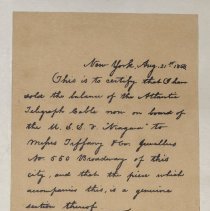 New York, Aug. 21st 1858
This is to certify that I have
sold the balance of the Atlantic
Telegraph Cable now on board of
the U. S. S. F. Niagara to
Messrs Taffany & Co. Jewellers
No 550 Broadway of this
city, and that the piece which
accompanies this, is a genuine
section thereof